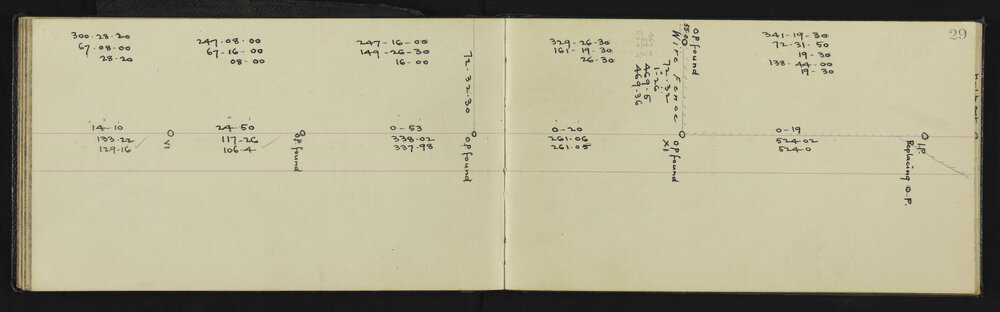 29
300.28.20
67.08.00
28.20
247.08.00
67-16-00
08.00
247-16-00
149-26-30
16-00
72.32.30
329-26-30
161-19-30
26-30
OP found
Wire Fence
72.32
1.26
469.5
469.36
341-19-30
72-31-50
19-30
138-44-00
19-30
14-10
133.22
129.16
24.50
117-26
106.4
OP found
0-53
338-02
337-98
OP found
0-20
261.06
261.05
OP found
XI
0-19
524.02
524.0
I.P.
Replacing O.P.